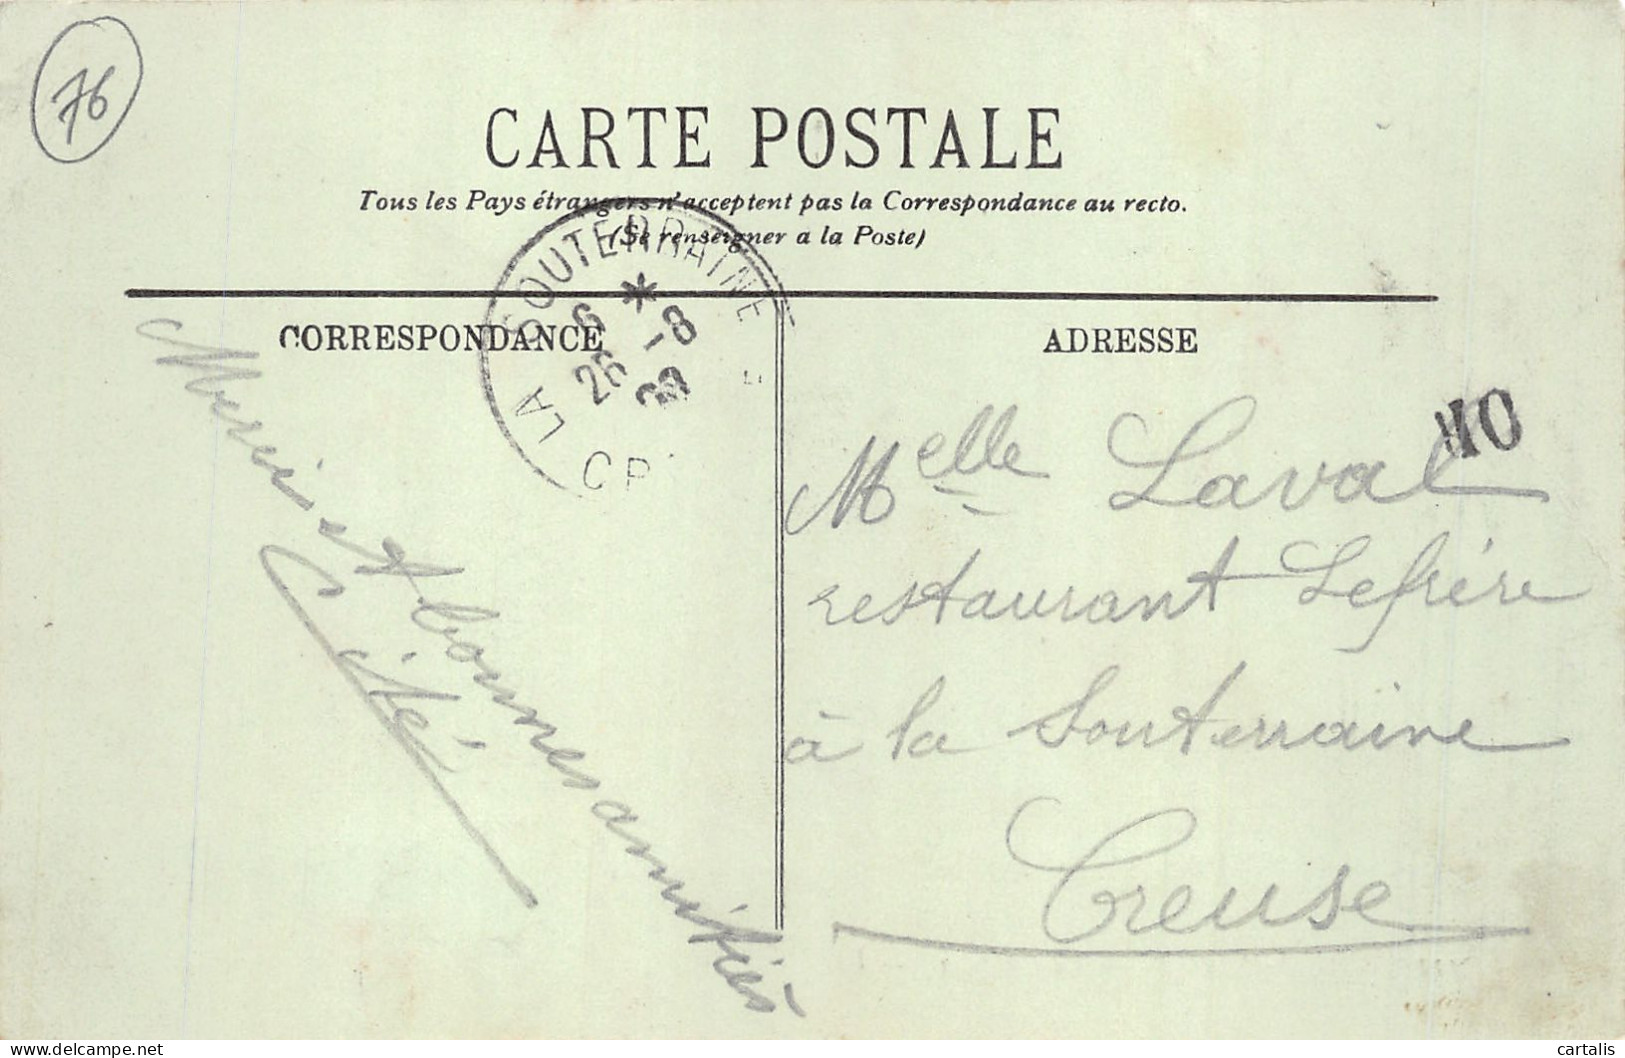 76
CARTE POSTALE
Tous les Pays étrangers n'acceptent pas la Correspondance au recto.
(Se renseigner a la Poste)
LA SOUTERRAINE
6 * 
26 -8
CORRESPONDANCE
Merci et bonnes amitiés
ADRESSE
10
Melle Laval
restaurant Lefrère
à la Souterraine
Creuse
cartalis
delcampe.net